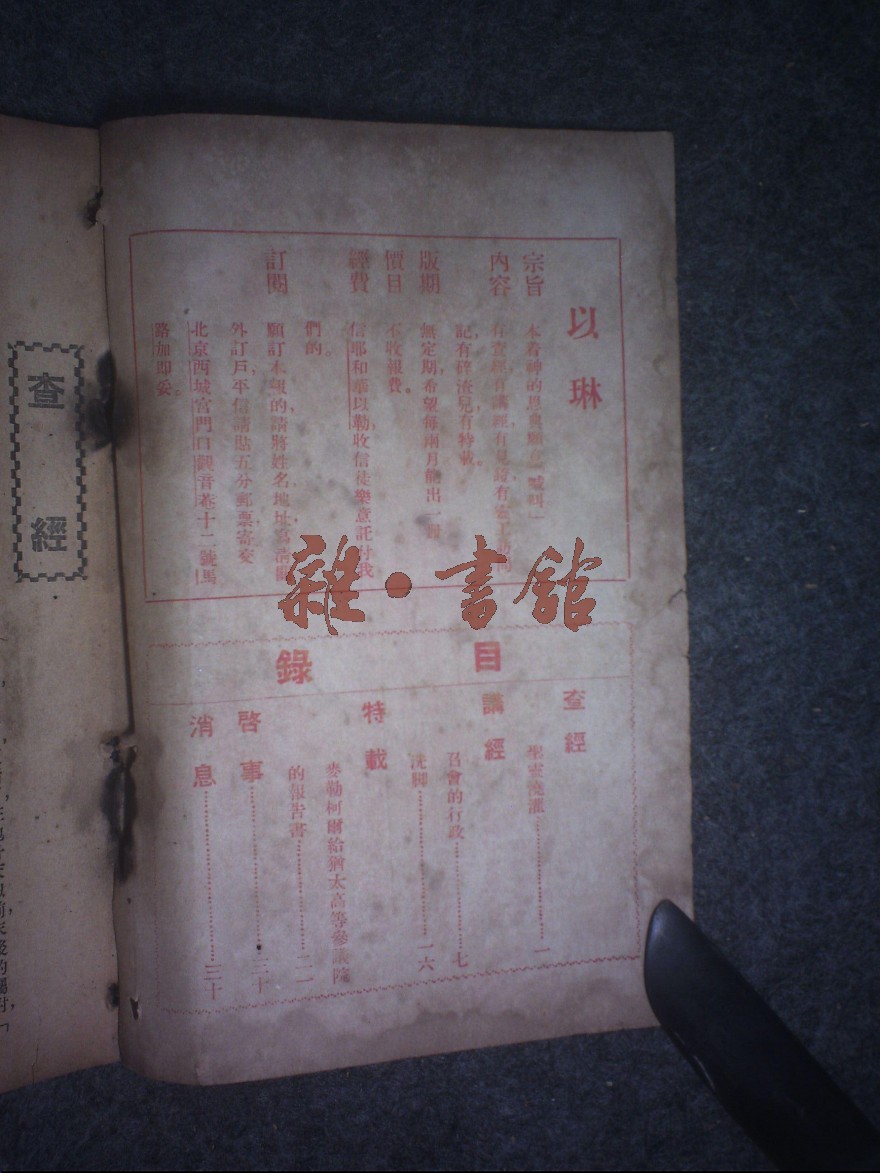 以琳
宗旨 本着神的恩
內容 有查經有講經有見證有
記有碎渣兒，有特載。
版期 無定期，希望每兩月能出一冊
價目 不收報費。
經費 信耶和華以勒，收信徒樂意託付我
們的。
訂閱 願訂本報的，請將姓名，地址，
外訂戶，平信請貼五分郵票，寄交
北京西城宮門口觀音菴十二號馬
路加即妥。
雜·書館
目錄
查經
聖靈澆灌……一
講經
召會的行政……七
洗脚……一六
特載
麥勒柯爾給猶太高等參議院
的報告書……二二
啓事……三十
消息……三十
查經